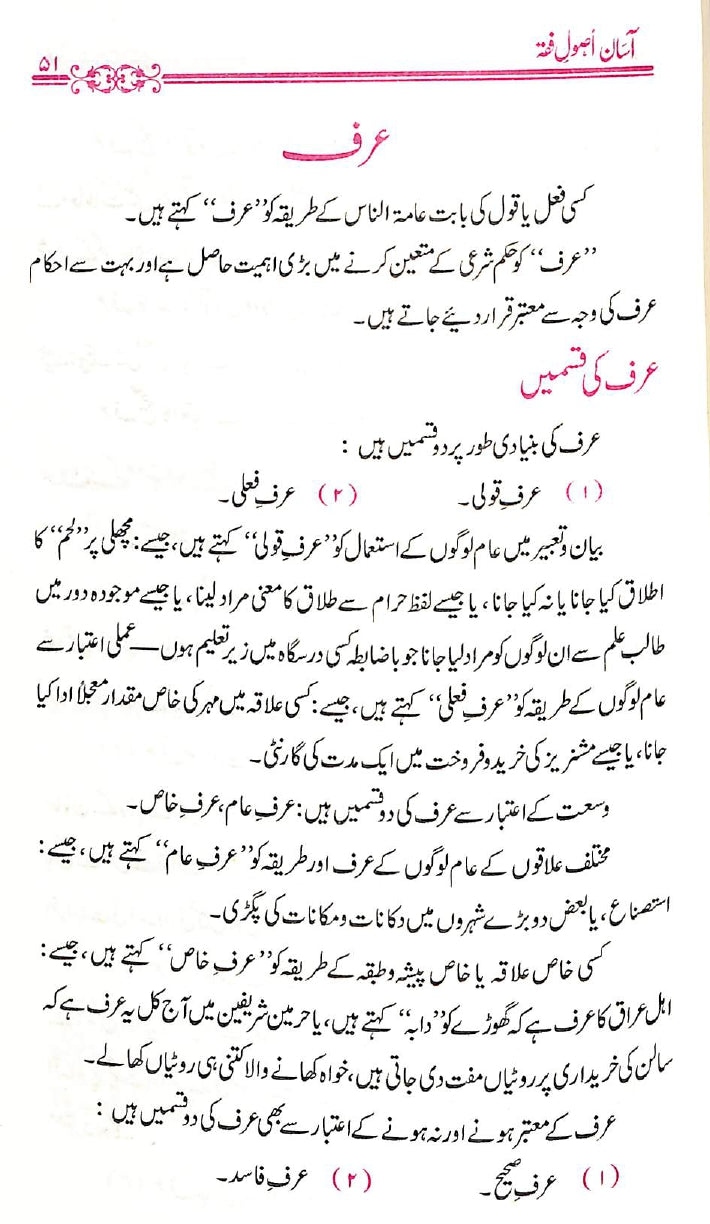 آسان اُصولِ فقہ
۵۱
عرف
کسی فعل یا قول کی بابت عامۃ الناس کے طریقہ کو ’’عرف‘‘ کہتے ہیں۔
’’عرف‘‘ کو حکم شرعی کے متعین کرنے میں بڑی اہمیت حاصل ہے اور بہت سے احکام
عرف کی وجہ سے معتبر قرار دیئے جاتے ہیں۔
عرف کی قسمیں
عرف کی بنیادی طور پر دو قسمیں ہیں :
(۱) عرفِ قولی۔ (۲) عرفِ فعلی۔
بیان و تعبیر میں عام لوگوں کے استعمال کو ’’عرفِ قولی‘‘ کہتے ہیں، جیسے: مچھلی پر ’’لحم‘‘ کا
اطلاق کیا جانا یا نہ کیا جانا، یا جیسے لفظ حرام سے طلاق کا معنی مراد لینا، یا جیسے موجودہ دور میں
طالب علم سے ان لوگوں کو مراد لیا جانا جو باضابطہ کسی درسگاہ میں زیر تعلیم ہوں — عملی اعتبار سے
عام لوگوں کے طریقہ کو ’’عرفِ فعلی‘‘ کہتے ہیں، جیسے: کسی علاقہ میں مہر کی خاص مقدار معجلاً ادا کیا
جانا، یا جیسے مشنریز کی خرید و فروخت میں ایک مدت کی گارنٹی۔
وسعت کے اعتبار سے عرف کی دو قسمیں ہیں: عرفِ عام، عرفِ خاص۔
مختلف علاقوں کے عام لوگوں کے عرف اور طریقہ کو ’’عرفِ عام‘‘ کہتے ہیں، جیسے:
استصناع، یا بعض دو بڑے شہروں میں دکانات و مکانات کی پگڑی۔
کسی خاص علاقہ یا خاص پیشہ و طبقہ کے طریقہ کو ’’عرفِ خاص‘‘ کہتے ہیں، جیسے:
اہل عراق کا عرف ہے کہ گھوڑے کو ’’دابہ‘‘ کہتے ہیں، یا حرمین شریفین میں آج کل یہ عرف ہے کہ
سالن کی خریداری پر روٹیاں مفت دی جاتی ہیں، خواہ کھانے والا کتنی ہی روٹیاں کھالے۔
عرف کے معتبر ہونے اور نہ ہونے کے اعتبار سے بھی عرف کی دو قسمیں ہیں :
(۱) عرفِ صحیح۔ (۲) عرفِ فاسد۔